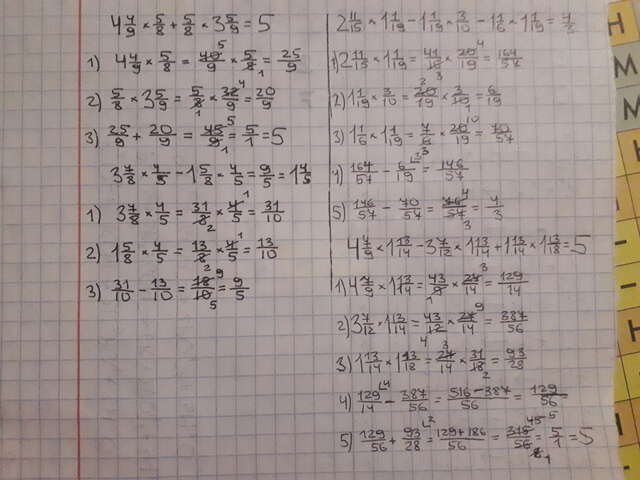 4 4/9 × 5/8 + 5/8 × 3 5/9 = 5
1) 4 4/9 × 5/8 = 40/9 × 5/8 = 25/9
2) 5/8 × 3 5/9 = 5/8 × 32/9 = 20/9
3) 25/9 + 20/9 = 45/9 = 5/1 = 5
3 7/8 × 4/5 - 1 5/8 × 4/5 = 9/5 = 1 4/5
1) 3 7/8 × 4/5 = 31/8 × 4/5 = 31/10
2) 1 5/8 × 4/5 = 13/8 × 4/5 = 13/10
3) 31/10 - 13/10 = 18/10 = 9/5
2 11/15 × 1 1/19 - 1 1/19 × 3/10 - 1 1/6 × 1 1/19 = 4/3
1) 2 11/15 × 1 1/19 = 41/15 × 20/19 = 164/57
2) 1 1/19 × 3/10 = 20/19 × 3/10 = 6/19
3) 1 1/6 × 1 1/19 = 7/6 × 20/19 = 70/57
4) 164/57 - 6/19 = 146/57
5) 146/57 - 70/57 = 76/57 = 4/3
4 7/9 × 1 13/14 - 3 7/12 × 1 13/14 + 1 13/14 × 1 13/18 = 5
1) 4 7/9 × 1 13/14 = 43/9 × 27/14 = 129/14
2) 3 7/12 × 1 13/14 = 43/12 × 27/14 = 387/56
3) 1 13/14 × 1 13/18 = 27/14 × 31/18 = 93/28
4) 129/14 - 387/56 = 516-387/56 = 129/56
5) 129/56 + 93/28 = 129+186/56 = 315/56 = 5/1 = 5